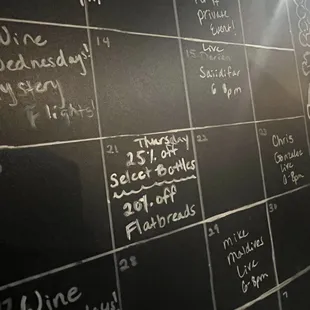 Private
Event!
Wine
Wednesdays!
Mystery
Flights
14
15
Live
Saiidifar
6-8pm
21
Thursday
25% off
Select Bottles
20% off
Flatbreads
22
23
Chris
Gonzales
Live
6-8pm
28
29
Mike
Maldives
Live
6-8pm
30
Wine
7